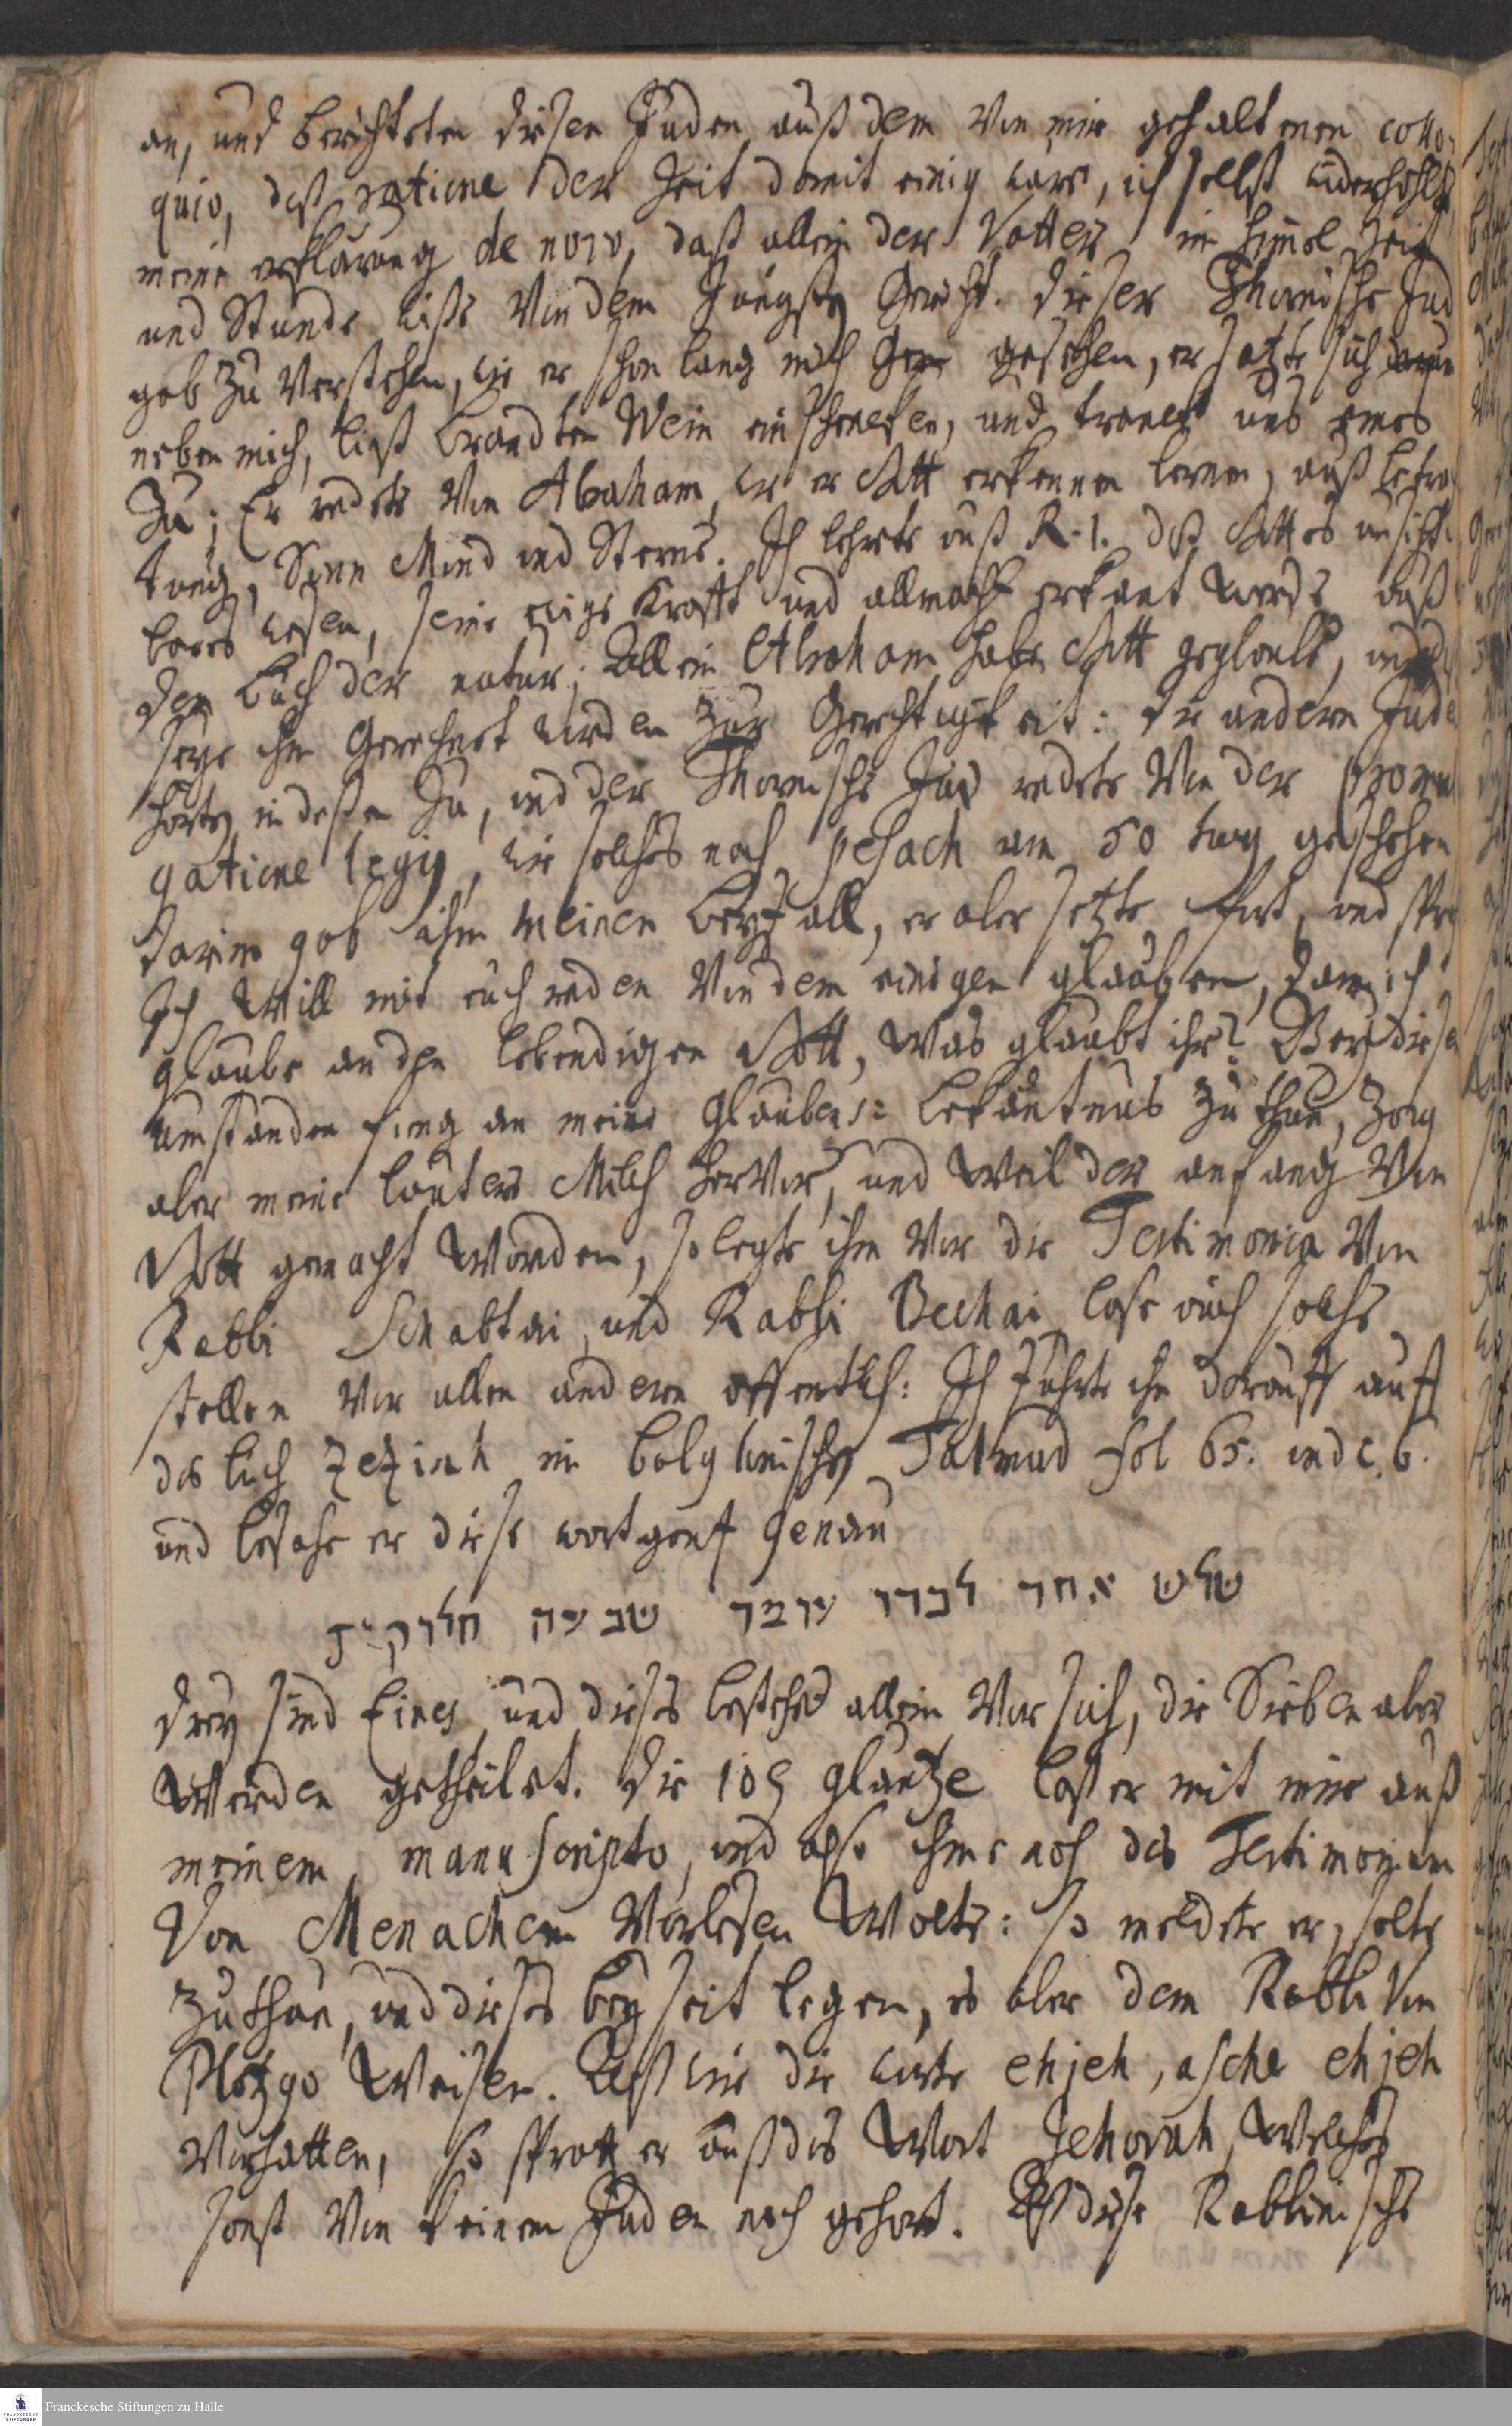 an, und berichteten diesen Juden auß dem von mir gehaltenen collo-
quio, daß ratione der Zeit damit einig ware, ich selbst widerhohlte
meine erklärung de novo, daß allein der Vatter im himmel Zeit
und Stunde wiße von dem Jüngsten Gericht. dieser Thornische Jud
gab zu verstehen, wie er schon lang mich gern gesehen, er setzte sich
neben mich, ließ brandten Wein einschencken, und tranck uns eines
zu; Er redete von Abraham, wie er Gott erkennen lernen, auß betrach-
tung, Sonn Mond und Sterns. Ich lehrte auß R. 1. daß Gottes unsicht-
bares wesen, seine ewige Krafft und allmacht erkant werde auß
dem buch der natur; Allein Abraham habe Gott geglaubt, und
seye ihm gerechnet worden zur Gerechtigkeit: die andern Juden
hörten indeßen zu, und der Thornische Jud redete von der promul-
gatione legis, wie solches nach pesach am 50 tag geschehen
darin gab ihm meinen beyfall, er aber setzte fort, und sprach
Ich will mit euch reden von dem einigen glauben, dann ich
glaube an den lebendigen Gott, was glaubt ihr? Bey diesen
umständen fieng an meine Glaubens-bekäntnus zu thun, zog
aber meine lautere Milch hervor, und weil der anfang von
Gott gemacht worden, so legte ihm vor die Testimonia von
Rabbi Schabtai, und Rabbi Bechai lase auch solche
stellen vor allen anderen offentlich: Ich führte ihn darauff auff
das buch Jezirah im bolognischen Talmud fol 65. und c. 6.
und besahe er diese wort gantz genau
שלש אחד לבדו עומד שבעה חלוקין
drey sind Eines und dieses bestehet allein vor sich, die Sieben aber
werden getheilet. die 10 S glantze laß er mit mir auß
meinem manuscripto, und alß ihme noch das Testimonium
von Menachem vorlesen wolte: so meldete er, solte
zuthun, und dieses beyseit legen, es aber dem Rabbi von
Plotzgo weisen. Alß wir die worte ehjeh, ascher ehjeh
vorhatten, so sprach er auß das Wort Jehovah, welches
sonst von keinem Juden noch gehört. Alß diese Rabbinische